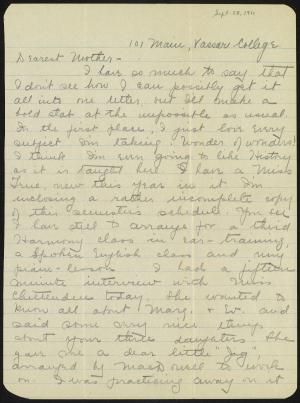 Sept. 28, 1911
101 Main, Vassar College
Dearest Mother -
I have so much to say that
I don't see how I can possibly get it
all into one letter, but I'll make a
bold stab at the impossible as usual.
In the first place, I just love every
subject I'm taking! Wonder of wonders!
I think I'm even going to like History
as it is taught here. I have a Miss
True, new this year in it. I'm
inclosing a rather incomplete copy
of this semester's schedule. You see
I have still to arrange for a third
Harmony class in ear-training,
a Spoken English class and my
piano-lesson. I had a fifteen
minute interview with Miss
Chittenden today. She wanted to
know all about Marg. & Ev. and
said some very nice things
about your three daughters. She
gave me a dear little "Jig",
arranged by MacDowell to work
on. I was practicing away on it